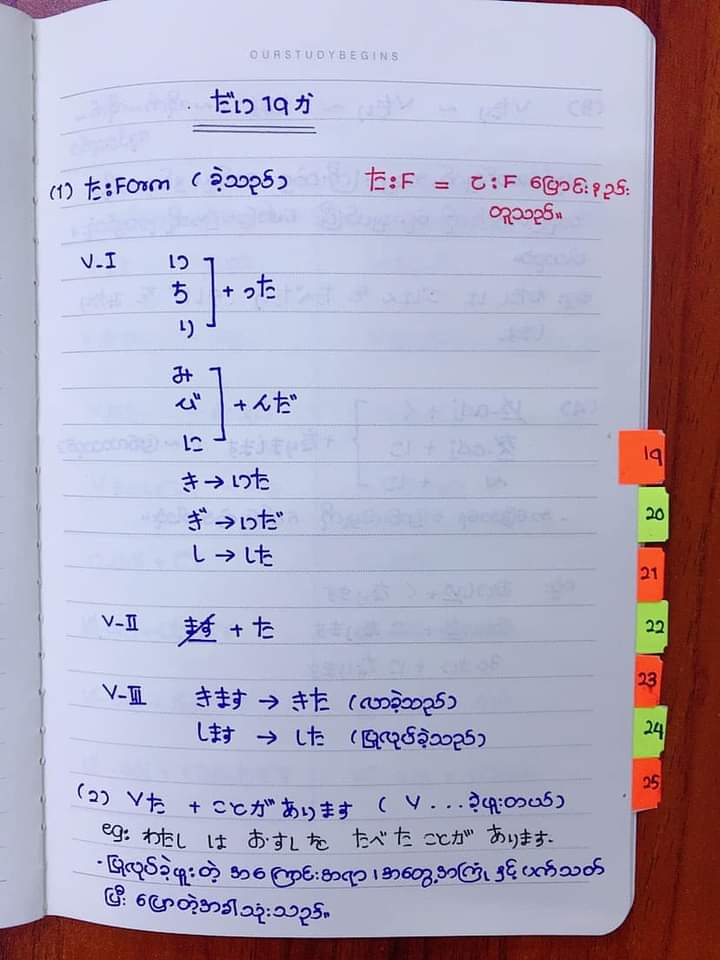 OURSTUDYBEGINS
だい 19 か
(1) た:Form (ခဲ့သည်) た:F = て:F ပြောင်းနည်း
တူသည်။
V-I い
ち + った
り
み
び + んだ
に
き → いた
ぎ → いだ
し → した
V-II ます + た
V-III きます → きた (လာခဲ့သည်)
します → した (ပြုလုပ်ခဲ့သည်)
(2) Vた + ことが あります ( V ... ခဲ့ဖူးတယ်)
eg: わたし は おすしを たべた ことが あります.
- ပြုလုပ်ခဲ့ဖူးတဲ့ အကြောင်းအရာ ၊ အတွေ့အကြုံ နှင့် ပက်သတ်
ပြီး ပြောတဲ့အခါသုံးသည်။
19
20
21
22
23
24
25